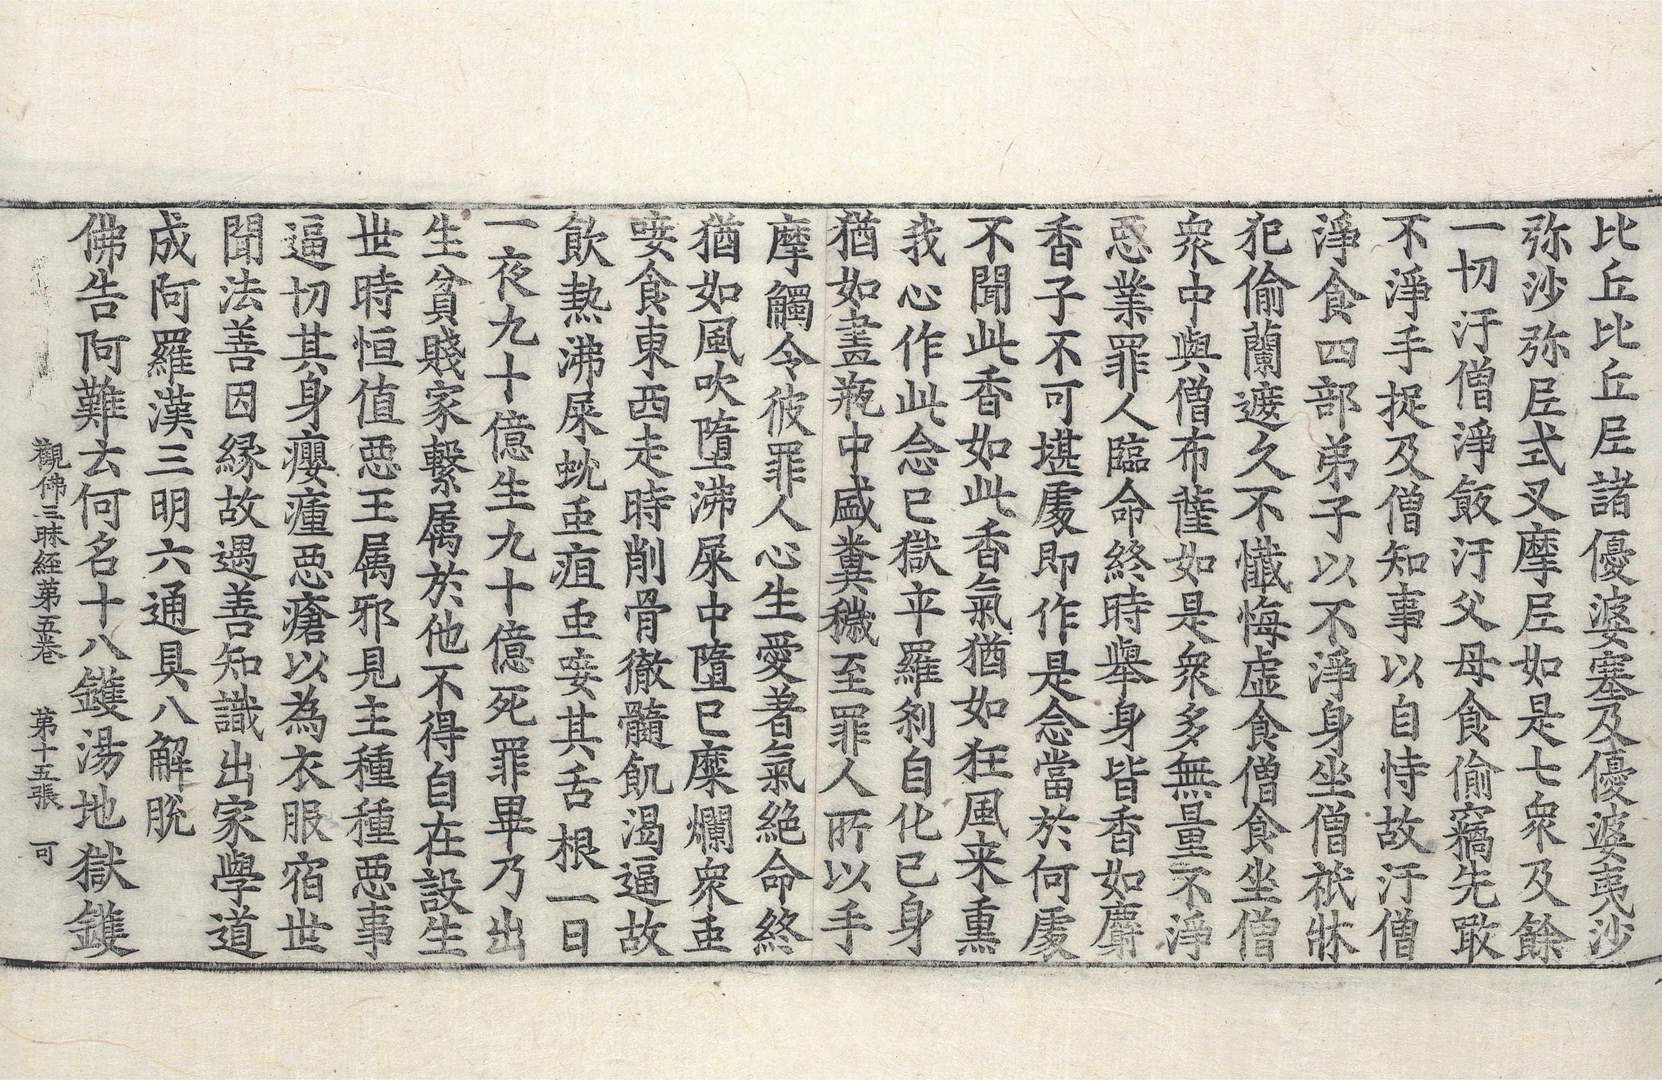 比丘比丘尼諸優婆塞及優婆夷沙
弥沙弥尼式叉摩尼如是七衆及餘
一切汙僧淨飯汙父母食偷竊先敢
不淨手捉及僧知事以自恃故汙僧
淨食四部弟子以不淨身坐僧祇牀
犯偷蘭遮久不懺悔虛食僧食坐僧
衆中與僧布薩如是衆多無量不淨
惡業罪人臨命終時舉身皆香如麝
香子不可堪處即作是念當於何處
不聞此香如此香氣猶如狂風来熏
我心作此念已獄卒羅剎自化己身
猶如畫瓶中盛糞穢至罪人所以手
摩觸令彼罪人心生愛著氣絕命終
猶如風吹墮沸屎中墮已糜爛衆䖝
唼食東西走時削骨徹髓飢渴逼故
飲熱沸屎蛻䖝疽䖝唼其舌根一日
一夜九十億生九十億死罪畢乃出
生貧賤家繫属於他不得自在設生
世時恒值惡王属邪見主種種惡事
逼切其身癭瘇惡瘡以為衣服宿世
聞法善因縁故遇善知識出家學道
成阿羅漢三明六通具八解脫
佛告阿難云何名十八鑊湯地獄鑊
觀佛三昧經第五卷　第十五張　可